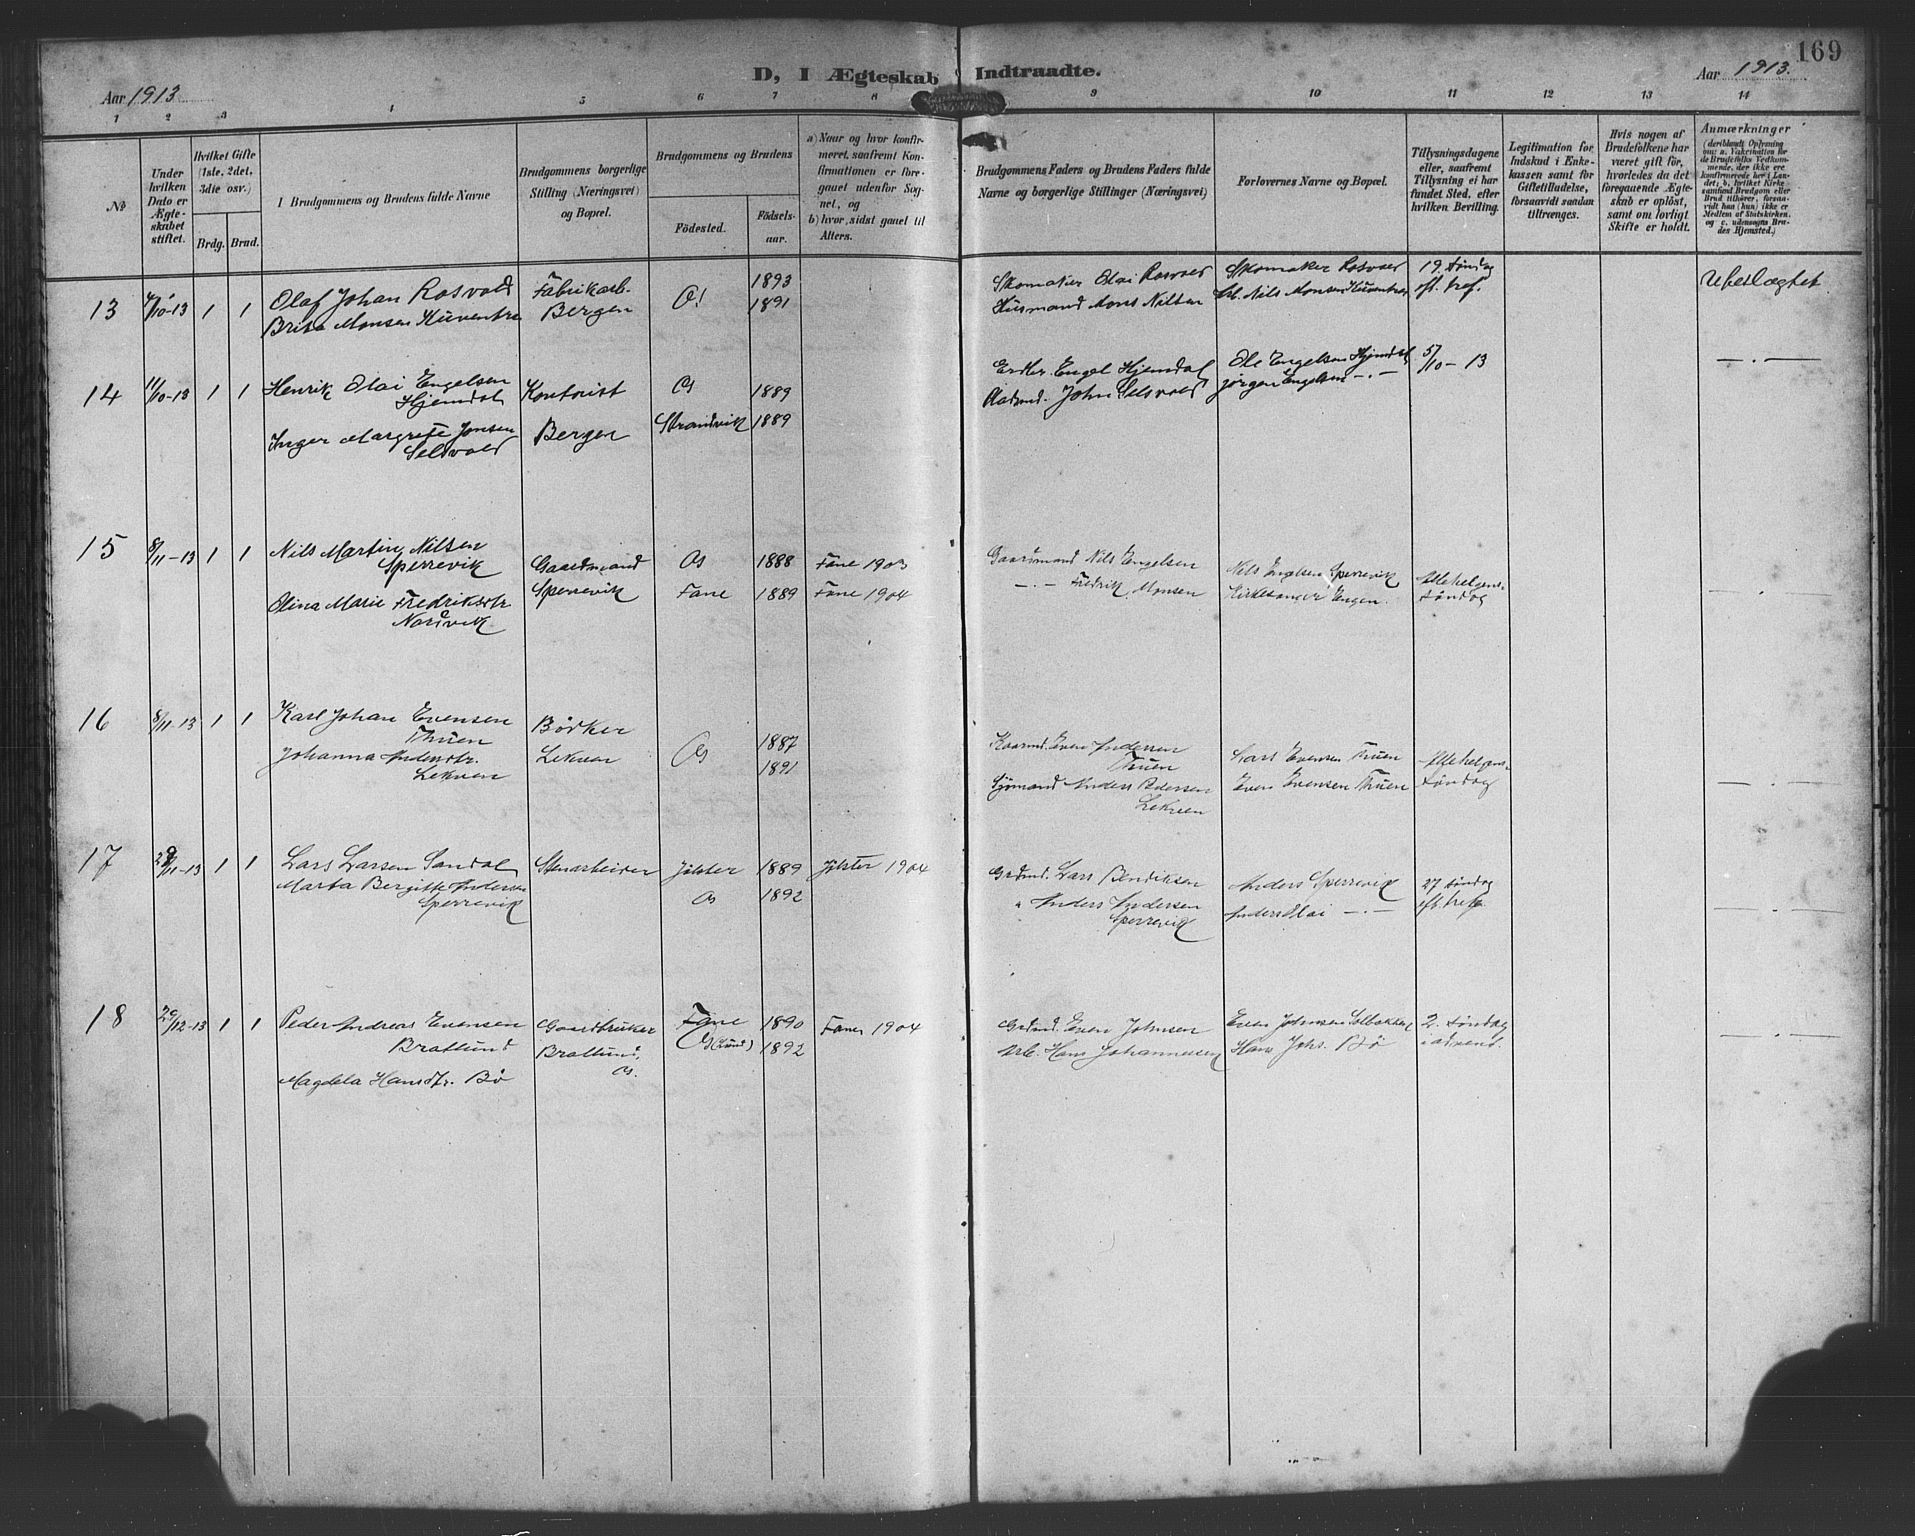 169
D, I Ægteskab Indtraadte.
Aar 1913
Aar 1913.
1 2 3 4 5 6 7 8 9 10 11 12 13 14
No
Under hvilken Dato er Ægteskabet stiftet.
Hvilket Gifte (1ste, 2det, 3die osv.)
Brdg. Brud.
Brudgommens og Brudens fulde Navne
Brudgommens borgerlige Stilling (Næringsvei) og Bopæl.
Brudgommens og Brudens
Födested.
Födselsaar.
a) Naar og hvor konfirmeret, saafremt Konfirmationen er foregaaet udenfor Sognet, og
b) hvor, sidst gaaet til Alters.
Brudgommens Faders og Brudens Faders fulde Navne og borgerlige Stillinger (Næringsvei)
Forlovernes Navne og Bopæl.
Tillysningsdagene eller, saafremt Tillysning ei har fundet Sted, efter hvilken Bevilling.
Legitimation for Indskud i Enkekassen samt for Giftetilladelse, forsaavidt saadan tiltrænges.
Hvis nogen af Brudefolkene har været gift før, hvorledes da det foregaaende Ægteskab er oplöst, samt om lovligt Skifte er holdt.
Anmærkninger
13 1 1 Olaf Johan Rosvold Fabrikarb. Os 1893 Skomaker Olai Rosvold Skomaker Rosvold 19. Söndag Ubeslægtet.
Brita Monsen Bergen 1891 Husmand Mons Nilsen Arb. Nils Monsen eft. tref.
14 11/10-13 1 1 Henrik Olai Engelsen Hjemdal Kontorist Os 1889 Engel Hjemdal Ole Engelsen Hjemdal 5/10-13 -.-
Inger Margrete Jonsen Selsvold Bergen Strandvik 1889 John Selsvold Jørgen Engelsen -.-
15 8/11-13 1 1 Nils Martin Nilsen Sperrevik Gaardmand Os 1888 Fane 1903 Gaardmand Nils Engelsen Nils Engelsen Sperrevik Allehelgens-
Olina Marie Fredriksdtr. Nordvik Sperrevik Fane 1889 Fane 1904 -.- Fredrik Monsen Kirkesanger Engen. söndag -.-
16 8/11-13 1 1 Karl Johan Evensen Thuen Bödker Os 1887 Even Andersen Thuen Lars Evensen Thuen Allehelgens-
Johanna Andersdtr. Lekven Lekven 1891 Sjömand Anders Pedersen Lekven Even Evensen Thuen söndag -.-
17 1 1 Lars Larsen Sandal Stenarbeider Jölster 1889 Jölster 1904 Grdmd. Lars Bendiksen Anders Sperrevik 27 söndag
Marta Bergitte Andersen Sperrevik Os 1892 " Anders Andersen Sperrevik Anders Olai -.- eft. tref. -.-
18 1 1 Peder Andreas Evensen Bratlund Gaardbruker Fane 1890 Fane 1904 Grdmd. Even Johnsen Even Johnsen Solbakken 2. söndag
Magdela Hansdtr. Bö Bratlund, Os. Os (Lund) 1892 Arb. Hans Johannessen Hans Johs. Bö i advent. -.-